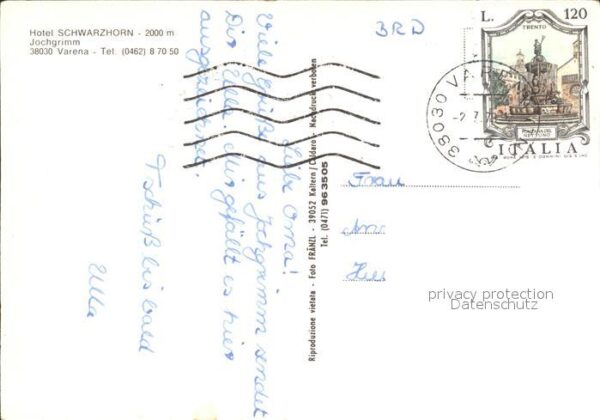 Hotel SCHWARZHORN - 2000 m
Jochgrimm
38030 Varena - Tel. (0462) 8 70 50
BRD
L. 120
TRENTO
FONTANA DEL NETTUNO
ITALIA
38030 VA
Liebe Oma!
Viele Grüße aus Jochgrimm sendet
Dir Ulla. Mir gefällt es hier
ausgezeichnet.
Tschüß bis bald
Ulla
Riproduzione vietata - Foto FRÄNZL - 39052 Kaltern/Caldaro - Nachdruck verboten
Tel. (0471) 963505
Frau
privacy protection
Datenschutz